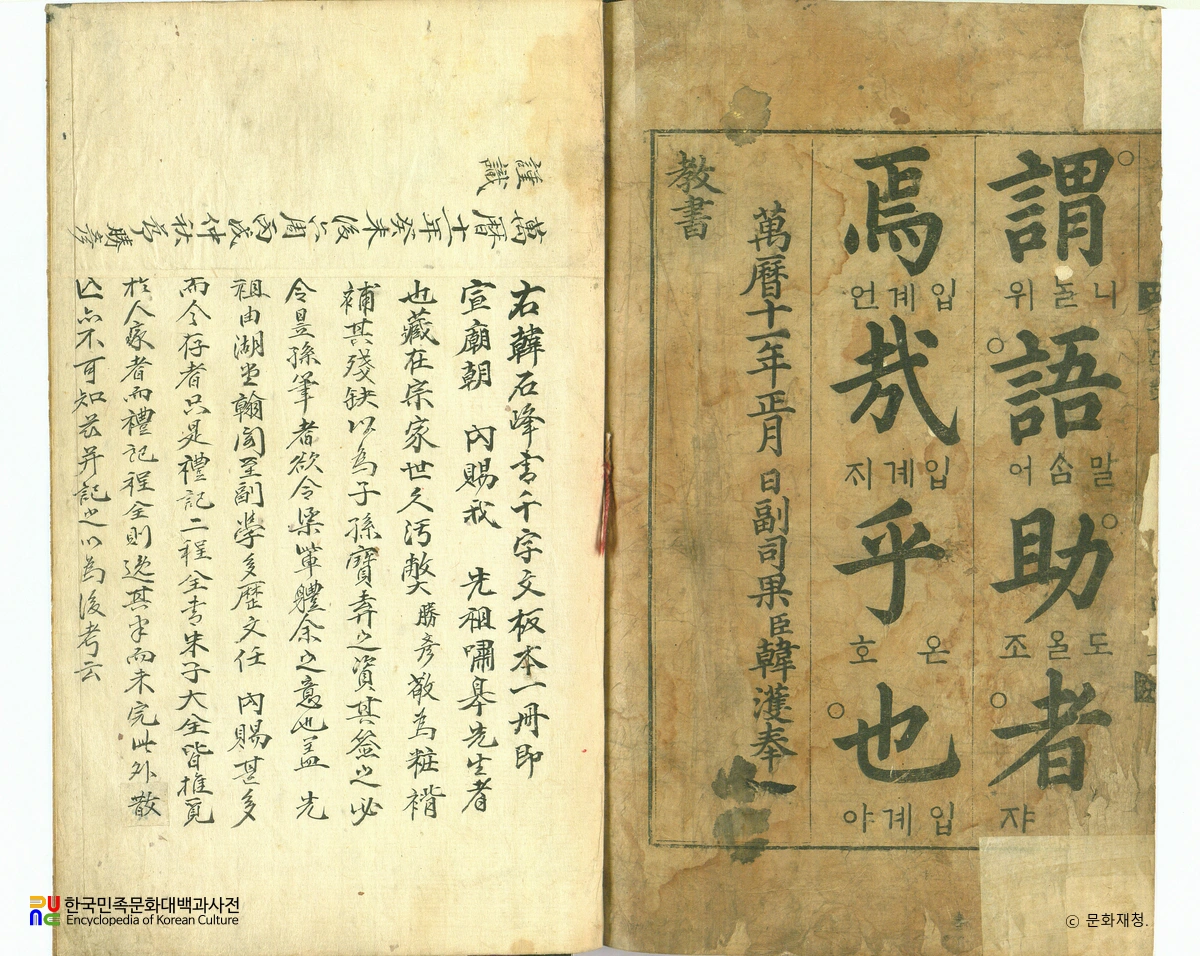 謂語助者
니를위
말솜어
도울조
쟈
焉哉乎也
입계언
입계지
온호
입계야
萬曆十一年正月 日副司果臣韓濩奉
教書
右韓石峰書千字文板本一冊即
宣廟朝 內賜我 先祖嘯皋先生者
也藏在宗家世久汚弊勝彦敬為粧褙
補其殘缺以為子孫寶弆之資其盛之必
令是孫筆者欲令 體余之意也盖 先
祖由湖堂翰 至副學多歷文任 內賜甚多
而今存者只是禮記二程全書朱子大全皆推覓
於人家者而禮記程全則逸其半而未完此外散
亡亦不可知玆并記之以為後考云
萬曆十一年癸未後 周丙戌仲秋 勝彦
謹識
한국민족문화대백과사전
Encyclopedia of Korean Culture
ⓒ 문화재청.